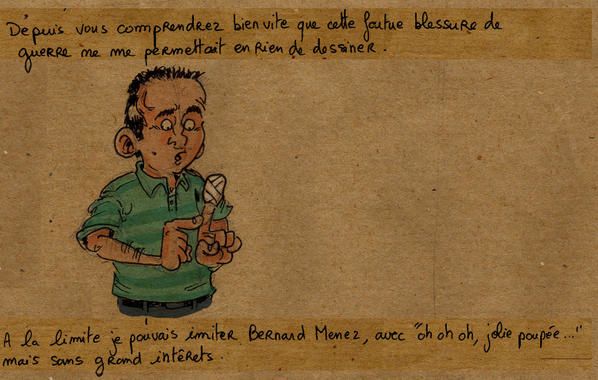 Depuis vous comprendrez bien vite que cette foutue blessure de
guerre ne me permettait en rien de dessiner.
A la limite je pouvais imiter Bernard Menez, avec "oh oh oh, jolie poupée..."
mais sans grand intérêts.